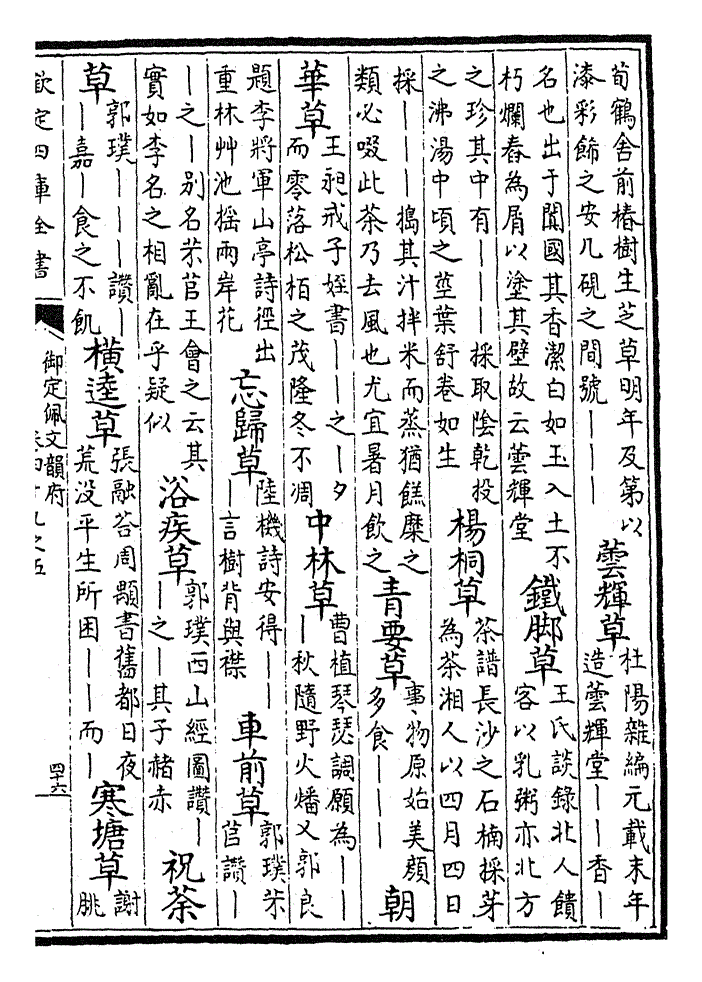 荀鶴舍前椿樹生芝草明年及第以
漆彩飾之安几硯之間號｜｜｜
蕓輝草
杜陽雜編元載末年
造蕓輝堂｜｜香｜
名也出于闐國其香潔白如玉入土不
朽爛舂為屑以塗其壁故云蕓輝堂
鐵脚草
王氏談錄北人饋
客以乳粥亦北方
之珍其中有｜｜｜採取陰乾投
之沸湯中頃之莖葉舒卷如生
楊桐草
茶譜長沙之石楠採芽
為茶湘人以四月四日
採｜｜｜搗其汁拌米而蒸猶餻糜之
類必啜此茶乃去風也尤宜暑月飲之
青要草
事物原始美顔
多食｜｜｜
朝
華草
王昶戒子姪書｜｜之｜夕
而零落松栢之茂隆冬不凋
中林草
曹植琴瑟調願為｜｜
｜秋隨野火燔又郭良
題李將軍山亭詩徑出
重林艸池揺兩岸花
忘歸草
陸機詩安得｜｜
｜言樹背與襟
車前草
郭璞芣
苢讚｜
｜之｜别名芣苢王會之云其
實如李名之相亂在乎疑似
浴疾草
郭璞西山經圖讚｜
｜之｜其子赭赤
祝荼
草
郭璞｜｜｜｜讚｜
｜嘉｜食之不飢
橫逵草
張融荅周顒書舊都日夜
荒没平生所困｜｜而｜
寒塘草
謝
朓
欽定四庫全書
御定佩文韻府
卷四十九之五
四十六